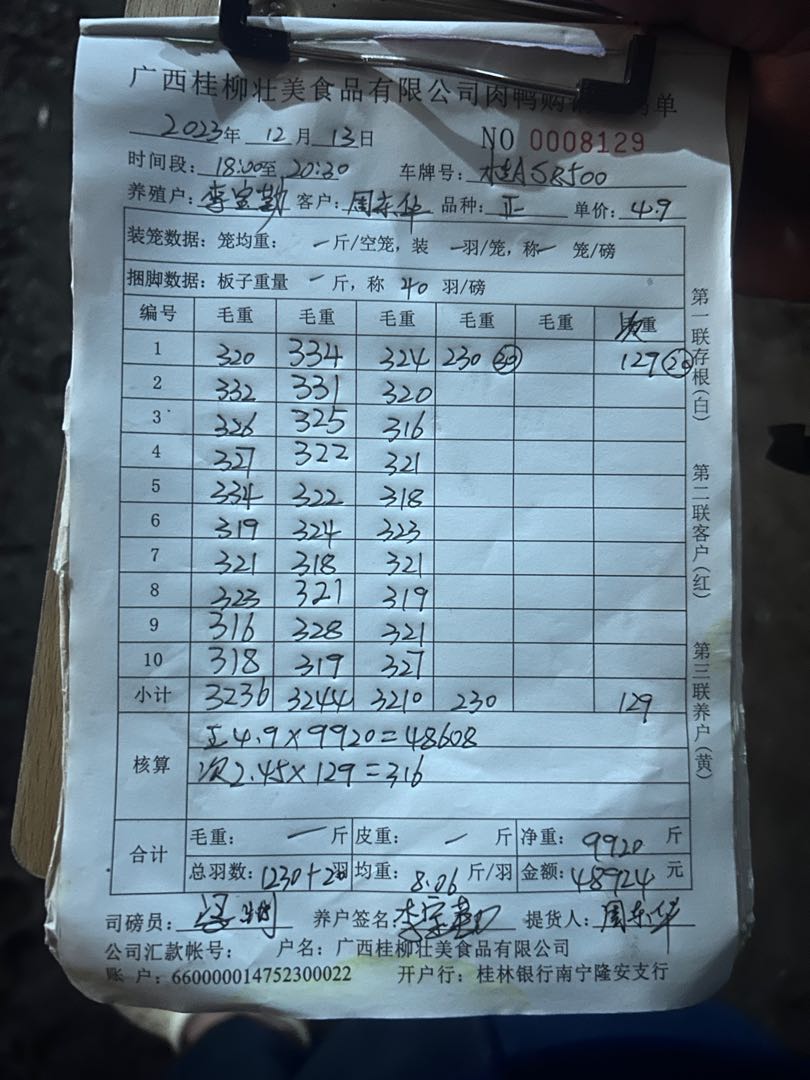 广西桂柳壮美食品有限公司肉鸭购 单
2023年 12月 13日 NO 0008129
时间段: 18:00至20:30 车牌号: 桂A58500
养殖户: 李宝勤 客户: 周东华 品种: 正 单价: 4.9
装笼数据: 笼均重: 一斤/空笼, 装 一羽/笼, 称一笼/磅
捆脚数据: 板子重量 一斤, 称 40 羽/磅
编号 毛重 毛重 毛重 毛重 毛重 次重
1 320 334 324 230 30 129 20
2 332 331 320
3 326 325 316
4 327 322 321
5 334 322 318
6 319 324 323
7 321 318 321
8 323 321 319
9 316 328 321
10 318 319 327
小计 3236 3244 3210 230 129
核算 正4.9×9920=48608
次2.45×129=316
合计 毛重: 一斤 皮重: 一斤 净重: 9920 斤
总羽数: 1230+20羽 均重: 8.06 斤/羽 金额: 48924 元
司磅员: 养户签名: 李宝勤 提货人: 周东华
公司汇款帐号: 户名: 广西桂柳壮美食品有限公司
账户: 660000014752300022 开户行: 桂林银行南宁隆安支行
第一联存根(白)
第二联客户(红)
第三联养户(黄)